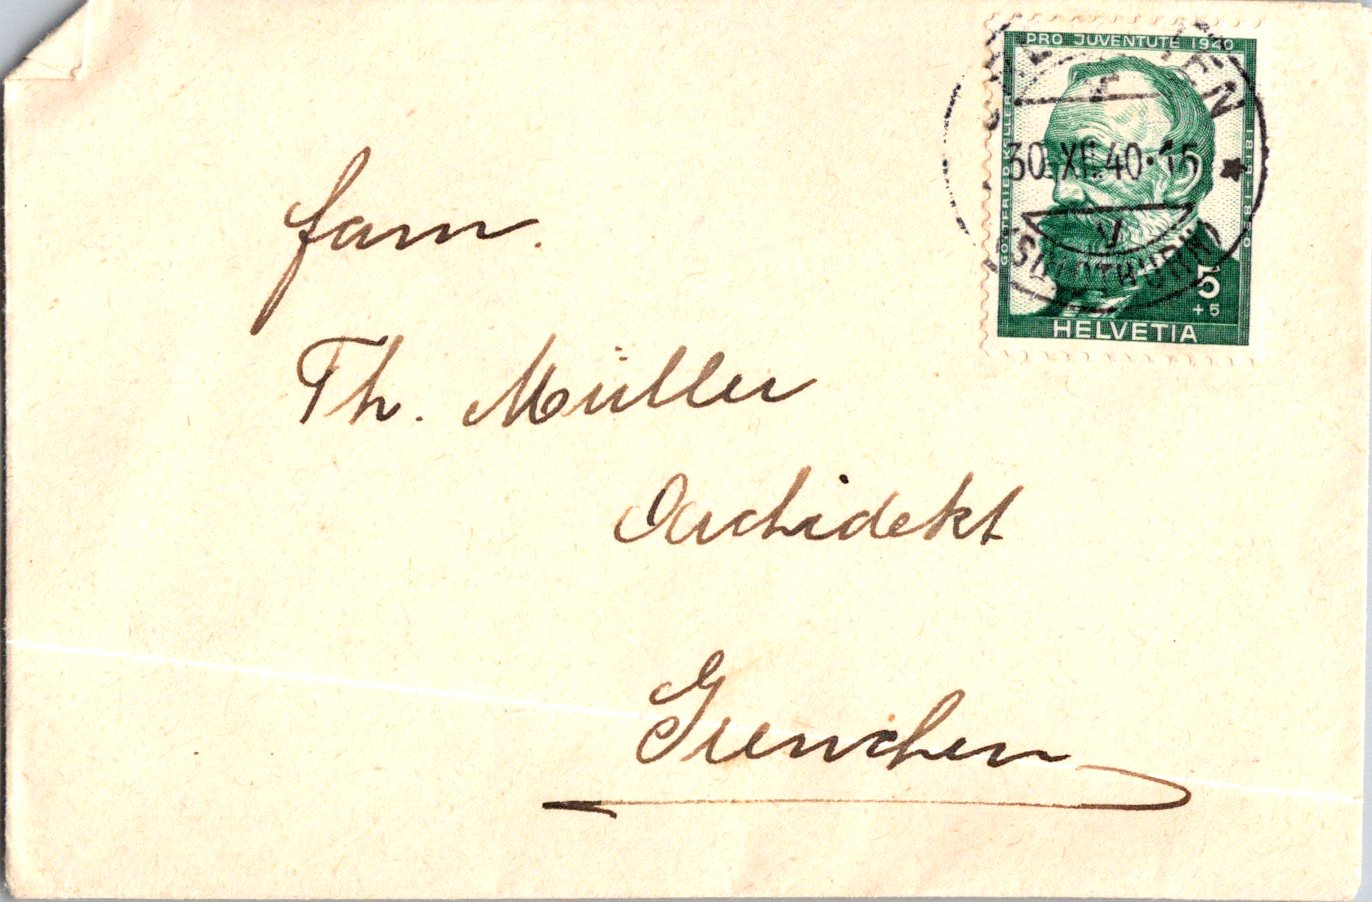 PRO JUVENTUTE 1940
GOTTFRIED KELLER
1819-1890
30.XII.40·15
(SOLOTHURN)
5
+5
HELVETIA
Fam.
Th. Müller
Archidekt
Grenchen